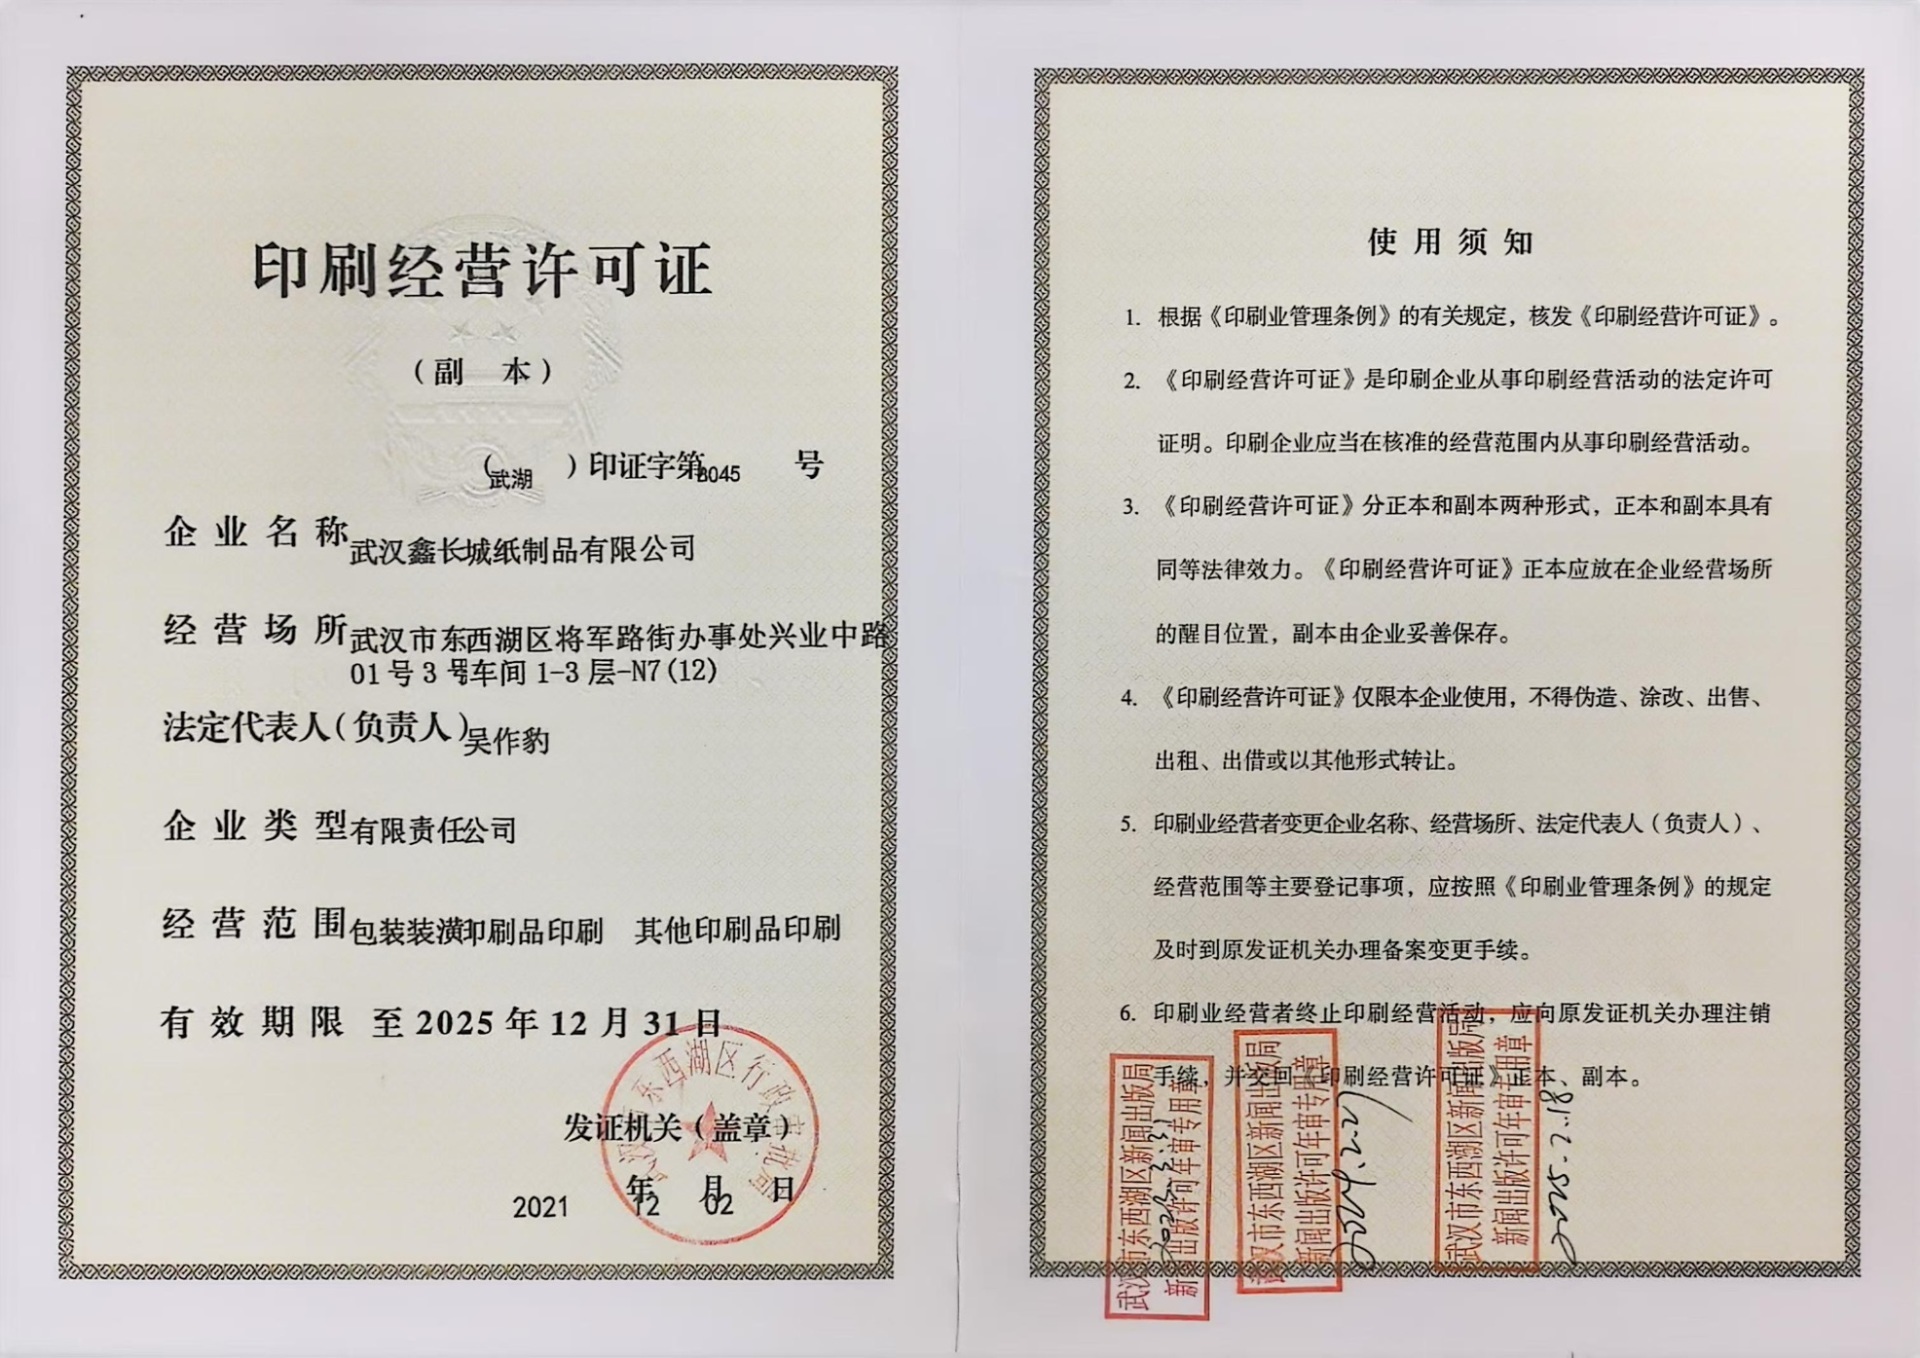 印刷经营许可证
（副 本）
（武湖）印证字第3045号
企业名称 武汉鑫长城纸制品有限公司
经营场所 武汉市东西湖区将军路街办事处兴业中路
01号3号车间1-3层-N7(12)
法定代表人（负责人）吴作豹
企业类型 有限责任公司
经营范围 包装装潢印刷品印刷 其他印刷品印刷
有效期限 至2025年12月31日
发证机关（盖章）
2021年12月02日
使用须知
1. 根据《印刷业管理条例》的有关规定，核发《印刷经营许可证》。
2. 《印刷经营许可证》是印刷企业从事印刷经营活动的法定许可
证明。印刷企业应当在核准的经营范围内从事印刷经营活动。
3. 《印刷经营许可证》分正本和副本两种形式，正本和副本具有
同等法律效力。《印刷经营许可证》正本应放在企业经营场所
的醒目位置，副本由企业妥善保存。
4. 《印刷经营许可证》仅限本企业使用，不得伪造、涂改、出售、
出租、出借或以其他形式转让。
5. 印刷业经营者变更企业名称、经营场所、法定代表人（负责人）、
经营范围等主要登记事项，应按照《印刷业管理条例》的规定
及时到原发证机关办理备案变更手续。
6. 印刷业经营者终止印刷经营活动，应向原发证机关办理注销
手续，并交回《印刷经营许可证》正本、副本。
武汉市东西湖区新闻出版局
新闻出版许可年审专用章
武汉市东西湖区新闻出版局
新闻出版许可年审专用章
武汉市东西湖区新闻出版局
新闻出版许可年审专用章